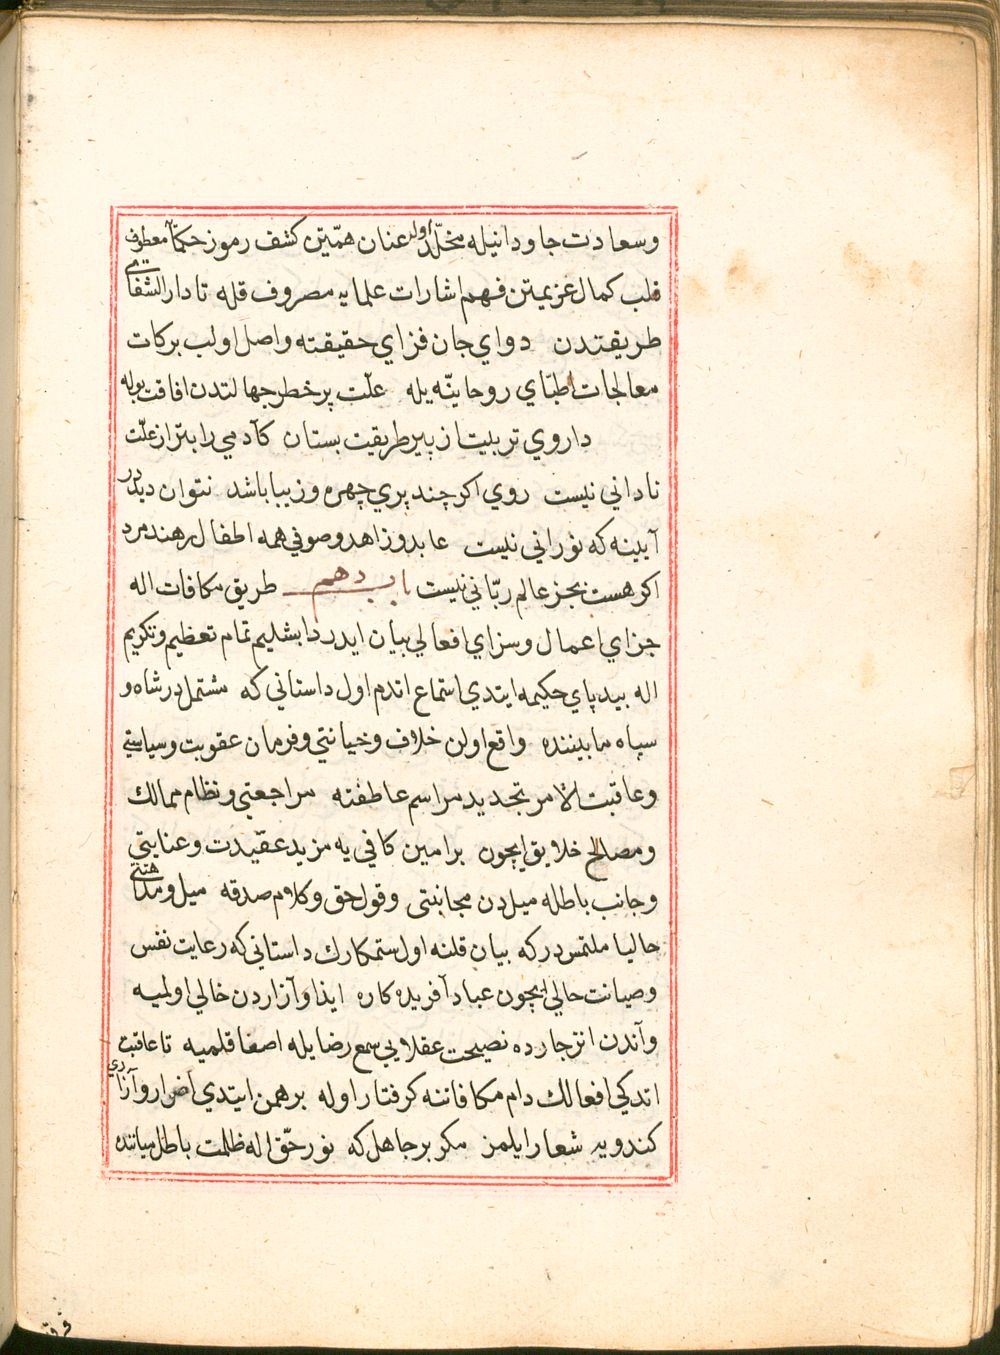 وسعادت جاودانیله مخلّد اوله عنان همّتین کشف رموز حکمآ معطوف
قلب کمال عزیمتن فهم اشارات علمایه مصروف قله تا دار الشفای
طریقتدن دوای جان فزای حقیقته واصل اولب برکات
معالجات اطبّای روحانیّه یله علّت پر خطر جهالتدن افاقت بوله
داروي تربیت از پیر طریقت بستان کآدمي را بتر از علّت
نادانی نیست روي اکر چند پري چهره وزیبا باشد نتوان دید در
آیینه که نورانی نیست عابد وزاهد وصوفی همه اطفال رهند مرد
اکر هست بجز عالم ربّانی نیست باب دهم طریق مکافات اله
جزاي اعمال وسزاي افعالی بیان ایدر دابشلیم تمام تعظیم وتکریم
اله بیدپاي حکیمه ایتدي استماع اتدم اول داستانی که مشتملدر شاه و
سپاه مابیننده واقع اولن خلاف وخیانتی وفرمان عقوبت وسیاستی
وعاقبت الامر تجدید مراسم عاطفته مراجعتی ونظام ممالك
ومصالح خلایق ایچون بر امین کافی یه مزید عقیدت وعنایتی
وجانب باطله میلدن مجانبتی وقول حق وکلام صدقه میل ومداهنتی
حالیا ملتمسدر که بیان قلنه اول ستمکارك داستانی که رعایت نفس
وصیانت حالی ایچون عباد آفریده کاره ایذا وآزاردن خالی اولمیه
وآندن انزجارده نصیحت عقلایی سمع رضایله اصغا قلمیه تا عاقبت
اتدکی افعالك دام مکافاتنه کرفتار اوله برهمن ایتدي اضرار وآزاري
کندویه شعار ایلمز مکر بر جاهل که نور حقّ اله ظلمت باطل میاننده
فرق